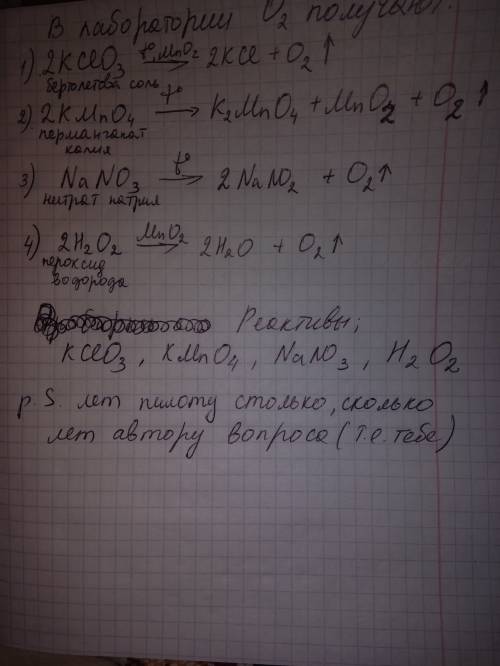 В лаборатории O₂ получают:
1) 2KClO₃ t°,MnO₂→ 2KCl + O₂↑
бертолетова соль
2) 2KMnO₄ t°→ K₂MnO₄ + MnO₂ + O₂↑
перманганат
калия
3) NaNO₃ t°→ 2NaNO₂ + O₂↑
нитрат натрия
4) 2H₂O₂ MnO₂→ 2H₂O + O₂↑
пероксид
водорода
Реактивы;
KClO₃, KMnO₄, NaNO₃, H₂O₂
p.S. лет пилоту столько, сколько
лет автору вопроса (т.е. тебе)